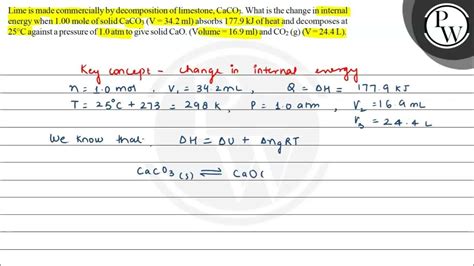 Lime is made commercially by decomposition of limestone, CaCO₃. What is the change in internal
energy when 1.00 mole of solid CaCO₃ (V = 34.2 ml) absorbs 177.9 kJ of heat and decomposes at
25°C against a pressure of 1.0 atm to give solid CaO. (Volume = 16.9 ml) and CO₂ (g) (V = 24.4 L).
PW
Key concept - change in internal energy
n = 1.0 mol, V₁ = 34.2mL, Q = ΔH = 177.9 kJ
T = 25°C + 273 = 298 K, P = 1.0 atm, V₂ = 16.9mL
V₃ = 24.4 L
We know that: ΔH = ΔU + ΔngRT
CaCO₃(s) ⇌ CaO(